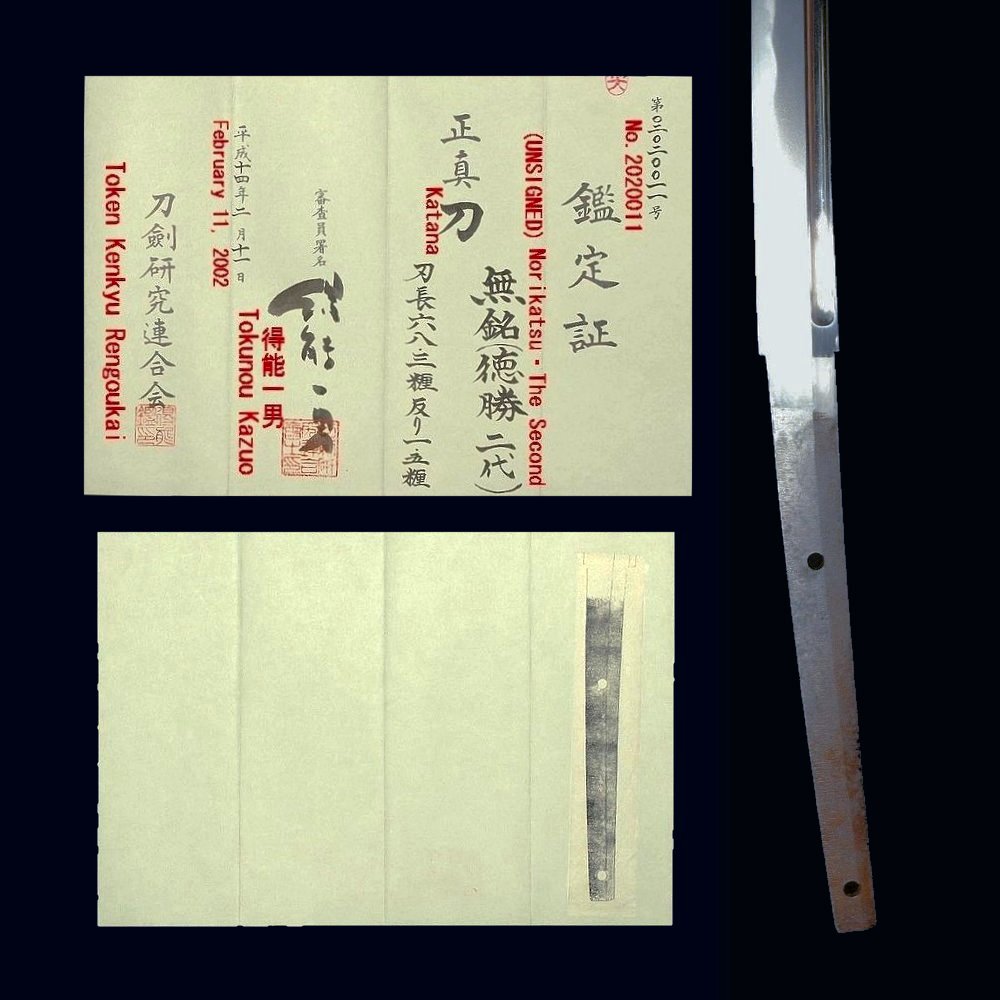 第〇二〇二〇〇一一号
No. 2020011
鑑定証
(UNSIGNED) Norikatsu・The Second
無銘(徳勝二代)
正真刀
Katana
刃長六八三糎反り一五糎
審査員署名
得能一男
得能一男
Tokunou Kazuo
平成十四年二月十一日
February 11, 2002
刀劍研究連合会
Token Kenkyu Rengoukai